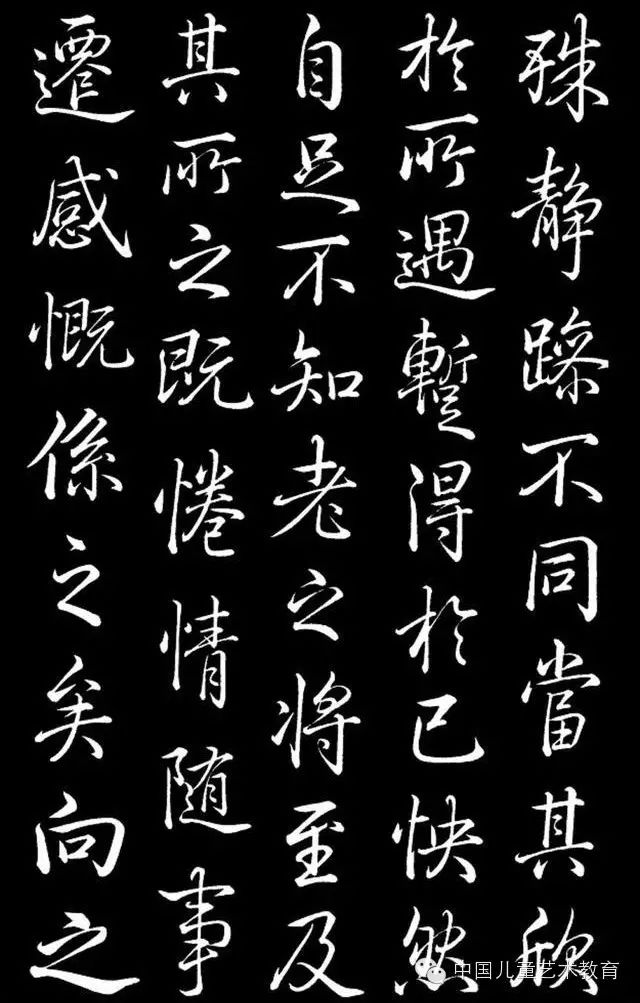 殊静躁不同當其欣
於所遇蹔得於己怏然
自足不知老之將至及
其所之既惓情随事
遷感慨係之矣向之
中国儿童艺术教育